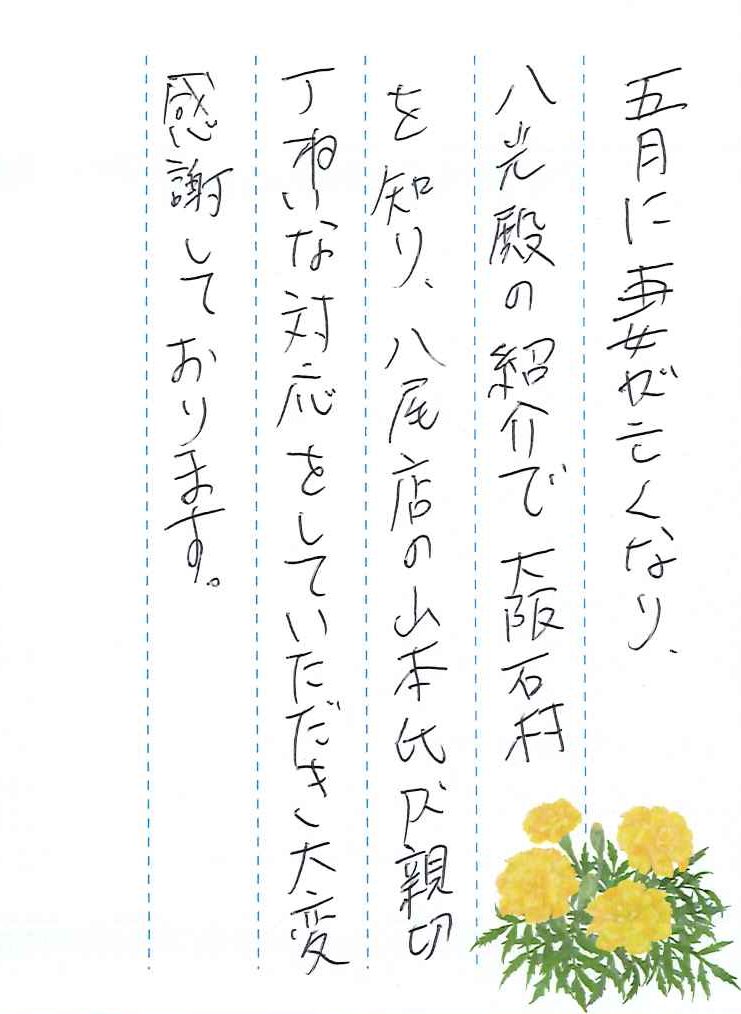 五月に妻が亡くなり、
八光殿の紹介で大阪石材
を知り、八尾店の山本氏が親切
丁ねいな対応をしていただき、大変
感謝しております。